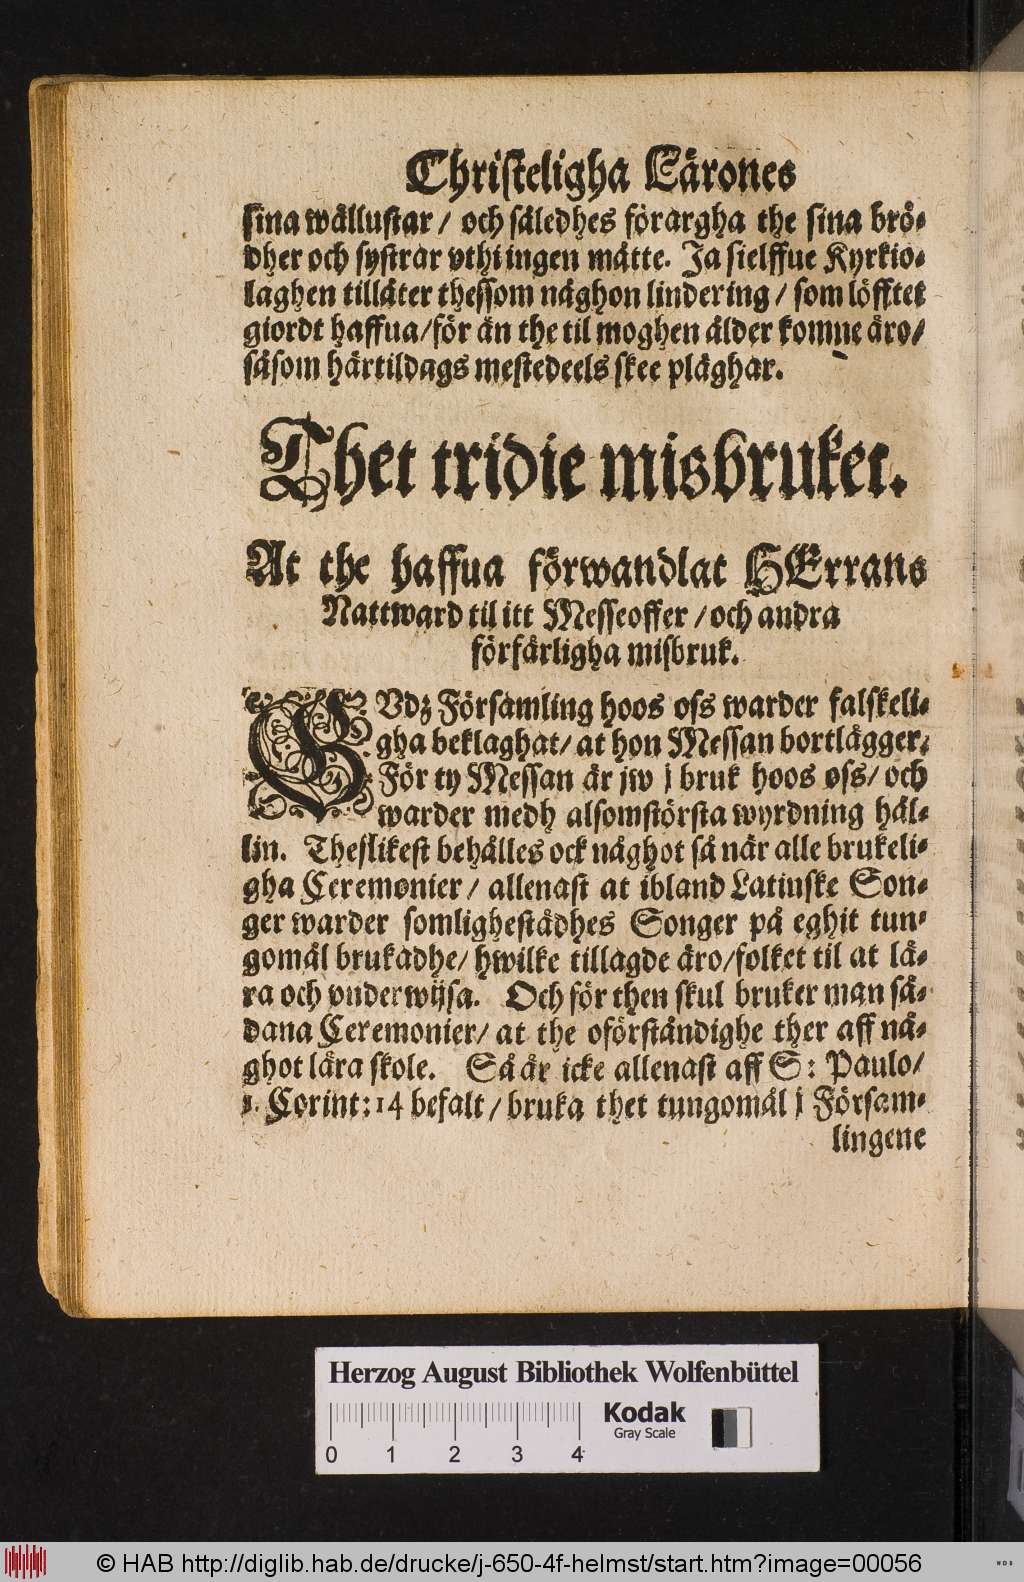 Christeligha Lärones
sina wällustar / och såledhes förargha the sina brö-
dher och systrar vthi ingen måtte. Ja sielffue Kyrkio-
laghen tillåter thessom någhon lindering / som löfftet
giordt haffua / för än the til moghen ålder komne äro /
såsom härtildags mestedeels skee plåghar.
Thet tridie misbruket.
At the haffua förwandlat HErrans
Nattward til itt Messeoffer / och andra
förfärligha misbruk.
GVdz Församling hoos oss warder falskeli-
gha beklaghat / at hon Messan bortlägger,
För ty Messan är jw j bruk hoos oss / och
warder medh alsomstörsta wyrdning häl-
lin. Theslikest behålles ock någhot så när alle brukeli-
gha Ceremonier / allenast at ibland Latinske Son-
ger warder somlighestädhes Songer på eghit tun-
gomål brukadhe / hwilke tillagde äro / folket til at lä-
ra och vnderwijsa. Och för then skul bruker man så-
dana Ceremonier / at the oförståndighe ther aff nå-
ghot lära skole. Så är icke allenast aff S: Paulo /
1. Corint: 14 befalt / bruka thet tungomål j Försam-
lingene
Herzog August Bibliothek Wolfenbüttel
Kodak
Gray Scale
0 1 2 3 4
© HAB http://diglib.hab.de/drucke/j-650-4f-helmst/start.htm?image=00056
WDB